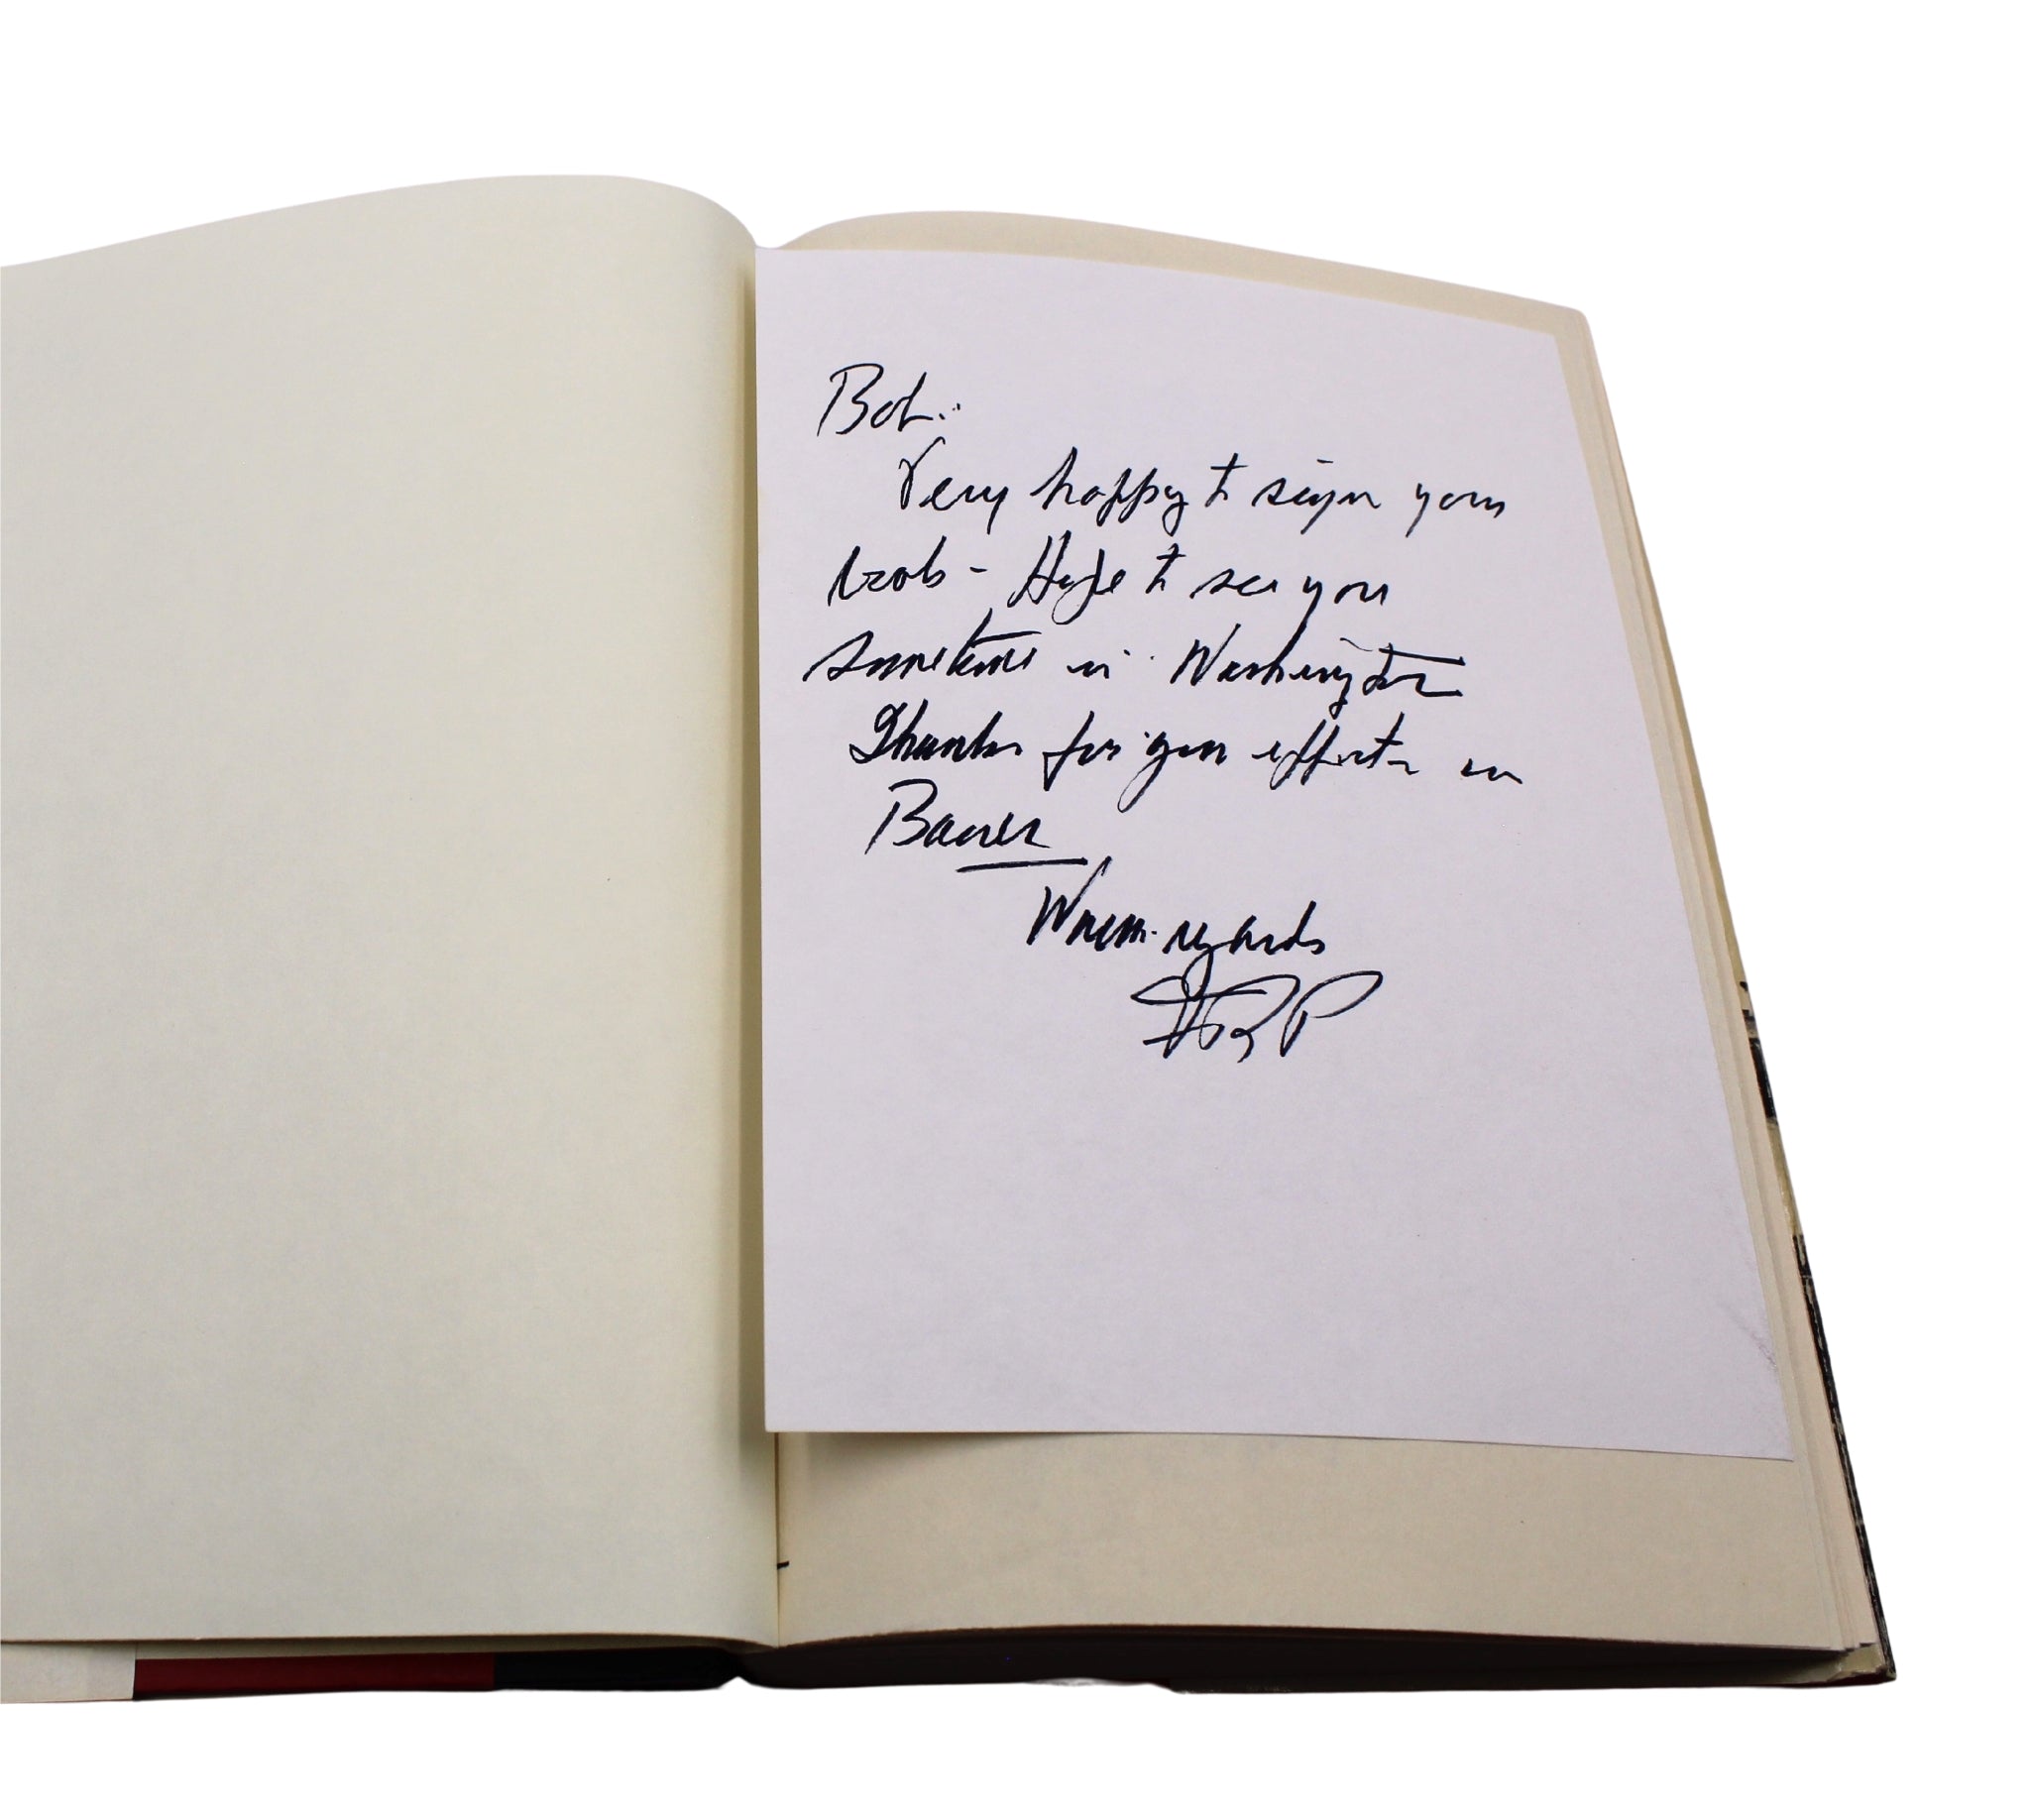 Bob:
Very happy to sign your
book - Hope to see you
sometime in Washington
Thanks for your efforts in
Warm regards